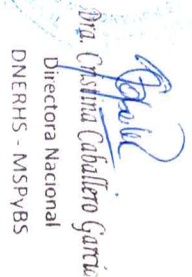 Dra. Cristina Caballero García
Directora Nacional
DNERHS - MSPyBS